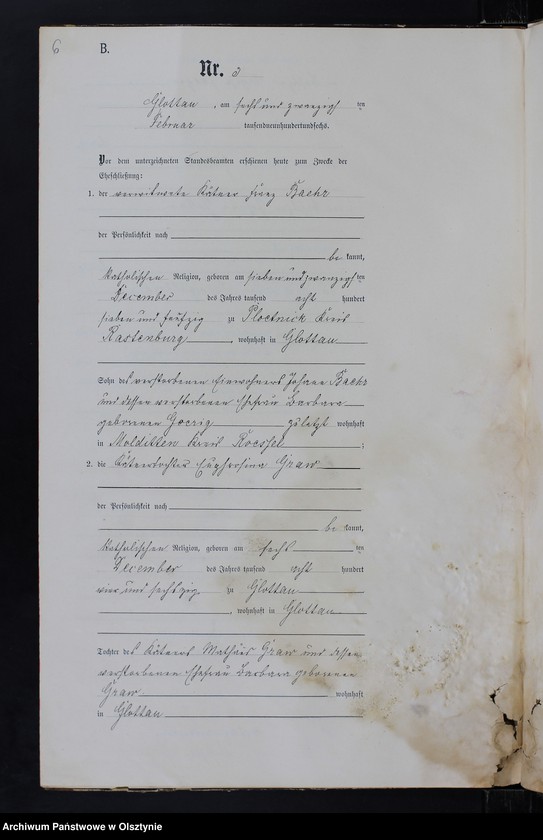 6
B.
Nr. 3
Glottau, am sechs und zwanzigsten
Februar tausendneunhundertundsechs.
Vor dem unterzeichneten Standesbeamten erschienen heute zum Zwecke der
Eheschließung:
1. der verwitwete Kätner Franz Baehr
der Persönlichkeit nach
be kannt,
katholischen Religion, geboren am sieben und zwanzigsten
Dezember des Jahres tausend acht hundert
sieben und fünfzig zu Ploetnick Kreis
Rastenburg, wohnhaft in Glottau
Sohn des verstorbenen Einwohners Johann Baehr
und dessen verstorbenen Ehefrau Barbara
geborenen Goerig zuletzt wohnhaft
in Molditten Kreis Roessel;
2. die Kätnertochter Euphrosina Graw
der Persönlichkeit nach
be kannt,
katholischen Religion, geboren am sechsten
Dezember des Jahres tausend acht hundert
vier und sechzig zu Glottau
, wohnhaft in Glottau
Tochter des Kätners Mathäus Graw und dessen
verstorbenen Ehefrau Barbara geborenen
Graw wohnhaft
in Glottau
Archiwum Państwowe w Olsztynie